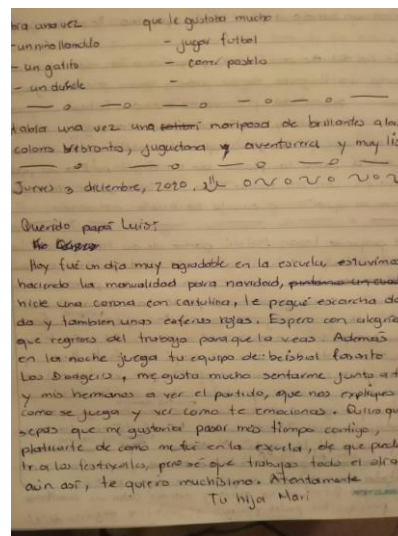 bía una vez que le gustaba mucho
- un niño llamado - jugar futbol
- un gatito - comer pastel
- un duende -
Había una vez una mariposa de brillantes ala
colores vibrantes, juguetona y aventurera y muy lis
Jueves 3 diciembre, 2020.
Querido papá Luis:
Hoy fué un día muy agradable en la escuela, estuvimo
haciendo la manualidad para navidad,
hice una corona con cartulina, le pegué escarcha do
da y tambien unas esferas rojas. Espero con alegría
que regreses del trabajo para que la veas. Además
en la noche juega tu equipo de beisbol favorito
Los Doogers, me gusta mucho sentarme junto a t
y mis hermanos a ver el partido, que nos expliques
como se juega y ver como te emocionas. Quiero qu
sepas que me gustaría pasar más tiempo contigo,
platicarte de como me fue en la escuela, de que pued
ir a los festivales, pero sé que trabajas todo el día
aún así, te quiero muchísimo. Atentamente
Tu hija Mari